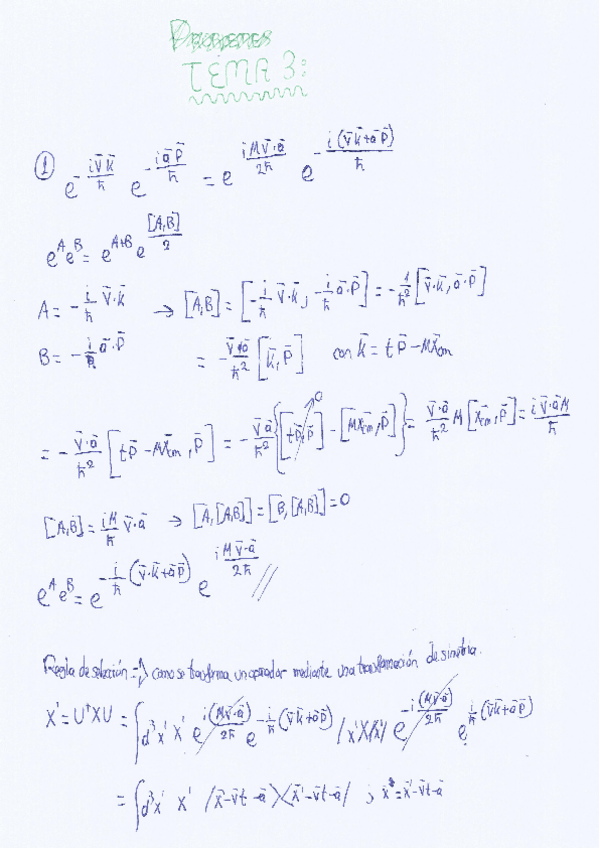 TEMA 3:
① e^{-\frac{i\bar{v}\bar{k}}{ħ}} e^{-\frac{i\bar{a}\bar{p}}{ħ}} = e^{\frac{iM\bar{v}·\bar{a}}{2ħ}} e^{-\frac{i(\bar{v}\bar{k}+\bar{a}\bar{p})}{ħ}}
e^A e^B = e^{A+B} e^{\frac{[A,B]}{2}}
A = -\frac{i}{ħ} \bar{v}·\bar{k} → [A,B] = [-\frac{i}{ħ}\bar{v}·\bar{k}, -\frac{i}{ħ}\bar{a}·\bar{p}] = -\frac{1}{ħ^2}[\bar{v}·\bar{k}, \bar{a}·\bar{p}]
B = -\frac{i}{ħ} \bar{a}·\bar{p} = -\frac{\bar{v}·\bar{a}}{ħ^2}[\bar{k},\bar{p}] con \bar{k} = t\bar{p} - M\bar{x}_{cm}
= -\frac{\bar{v}·\bar{a}}{ħ^2}[t\bar{p} - M\bar{x}_{cm}, \bar{p}] = -\frac{\bar{v}\bar{a}}{ħ^2}{[t\bar{p},\bar{p}] 0 - [M\bar{x}_{cm},\bar{p}]} = \frac{\bar{v}·\bar{a}}{ħ^2} M[\bar{x}_{cm},\bar{p}] = \frac{i\bar{v}·\bar{a}M}{ħ}
[A,B] = \frac{iM}{ħ} \bar{v}·\bar{a} → [A,[A,B]] = [B,[A,B]] = 0
e^A e^B = e^{-\frac{i}{ħ}(\bar{v}·\bar{k}+\bar{a}\bar{p})} e^{\frac{iM\bar{v}·\bar{a}}{2ħ}} //
Regla de selección como se transforma un operador mediante una transformación de simetría.
X' = U†XU = ∫d³x' x' e^{\frac{i(M\bar{v}·\bar{a})}{2ħ}} e^{-\frac{i}{ħ}(\bar{v}\bar{k}+\bar{a}\bar{p})} |x'⟩⟨x'| e^{-\frac{i(M\bar{v}·\bar{a})}{2ħ}} e^{\frac{i}{ħ}(\bar{v}\bar{k}+\bar{a}\bar{p})}
= ∫d³x' x' |\bar{x}-\bar{v}t-\bar{a}⟩⟨\bar{x}'-\bar{v}t-\bar{a}| ; \bar{x}'' = \bar{x}'-\bar{v}t-\bar{a}